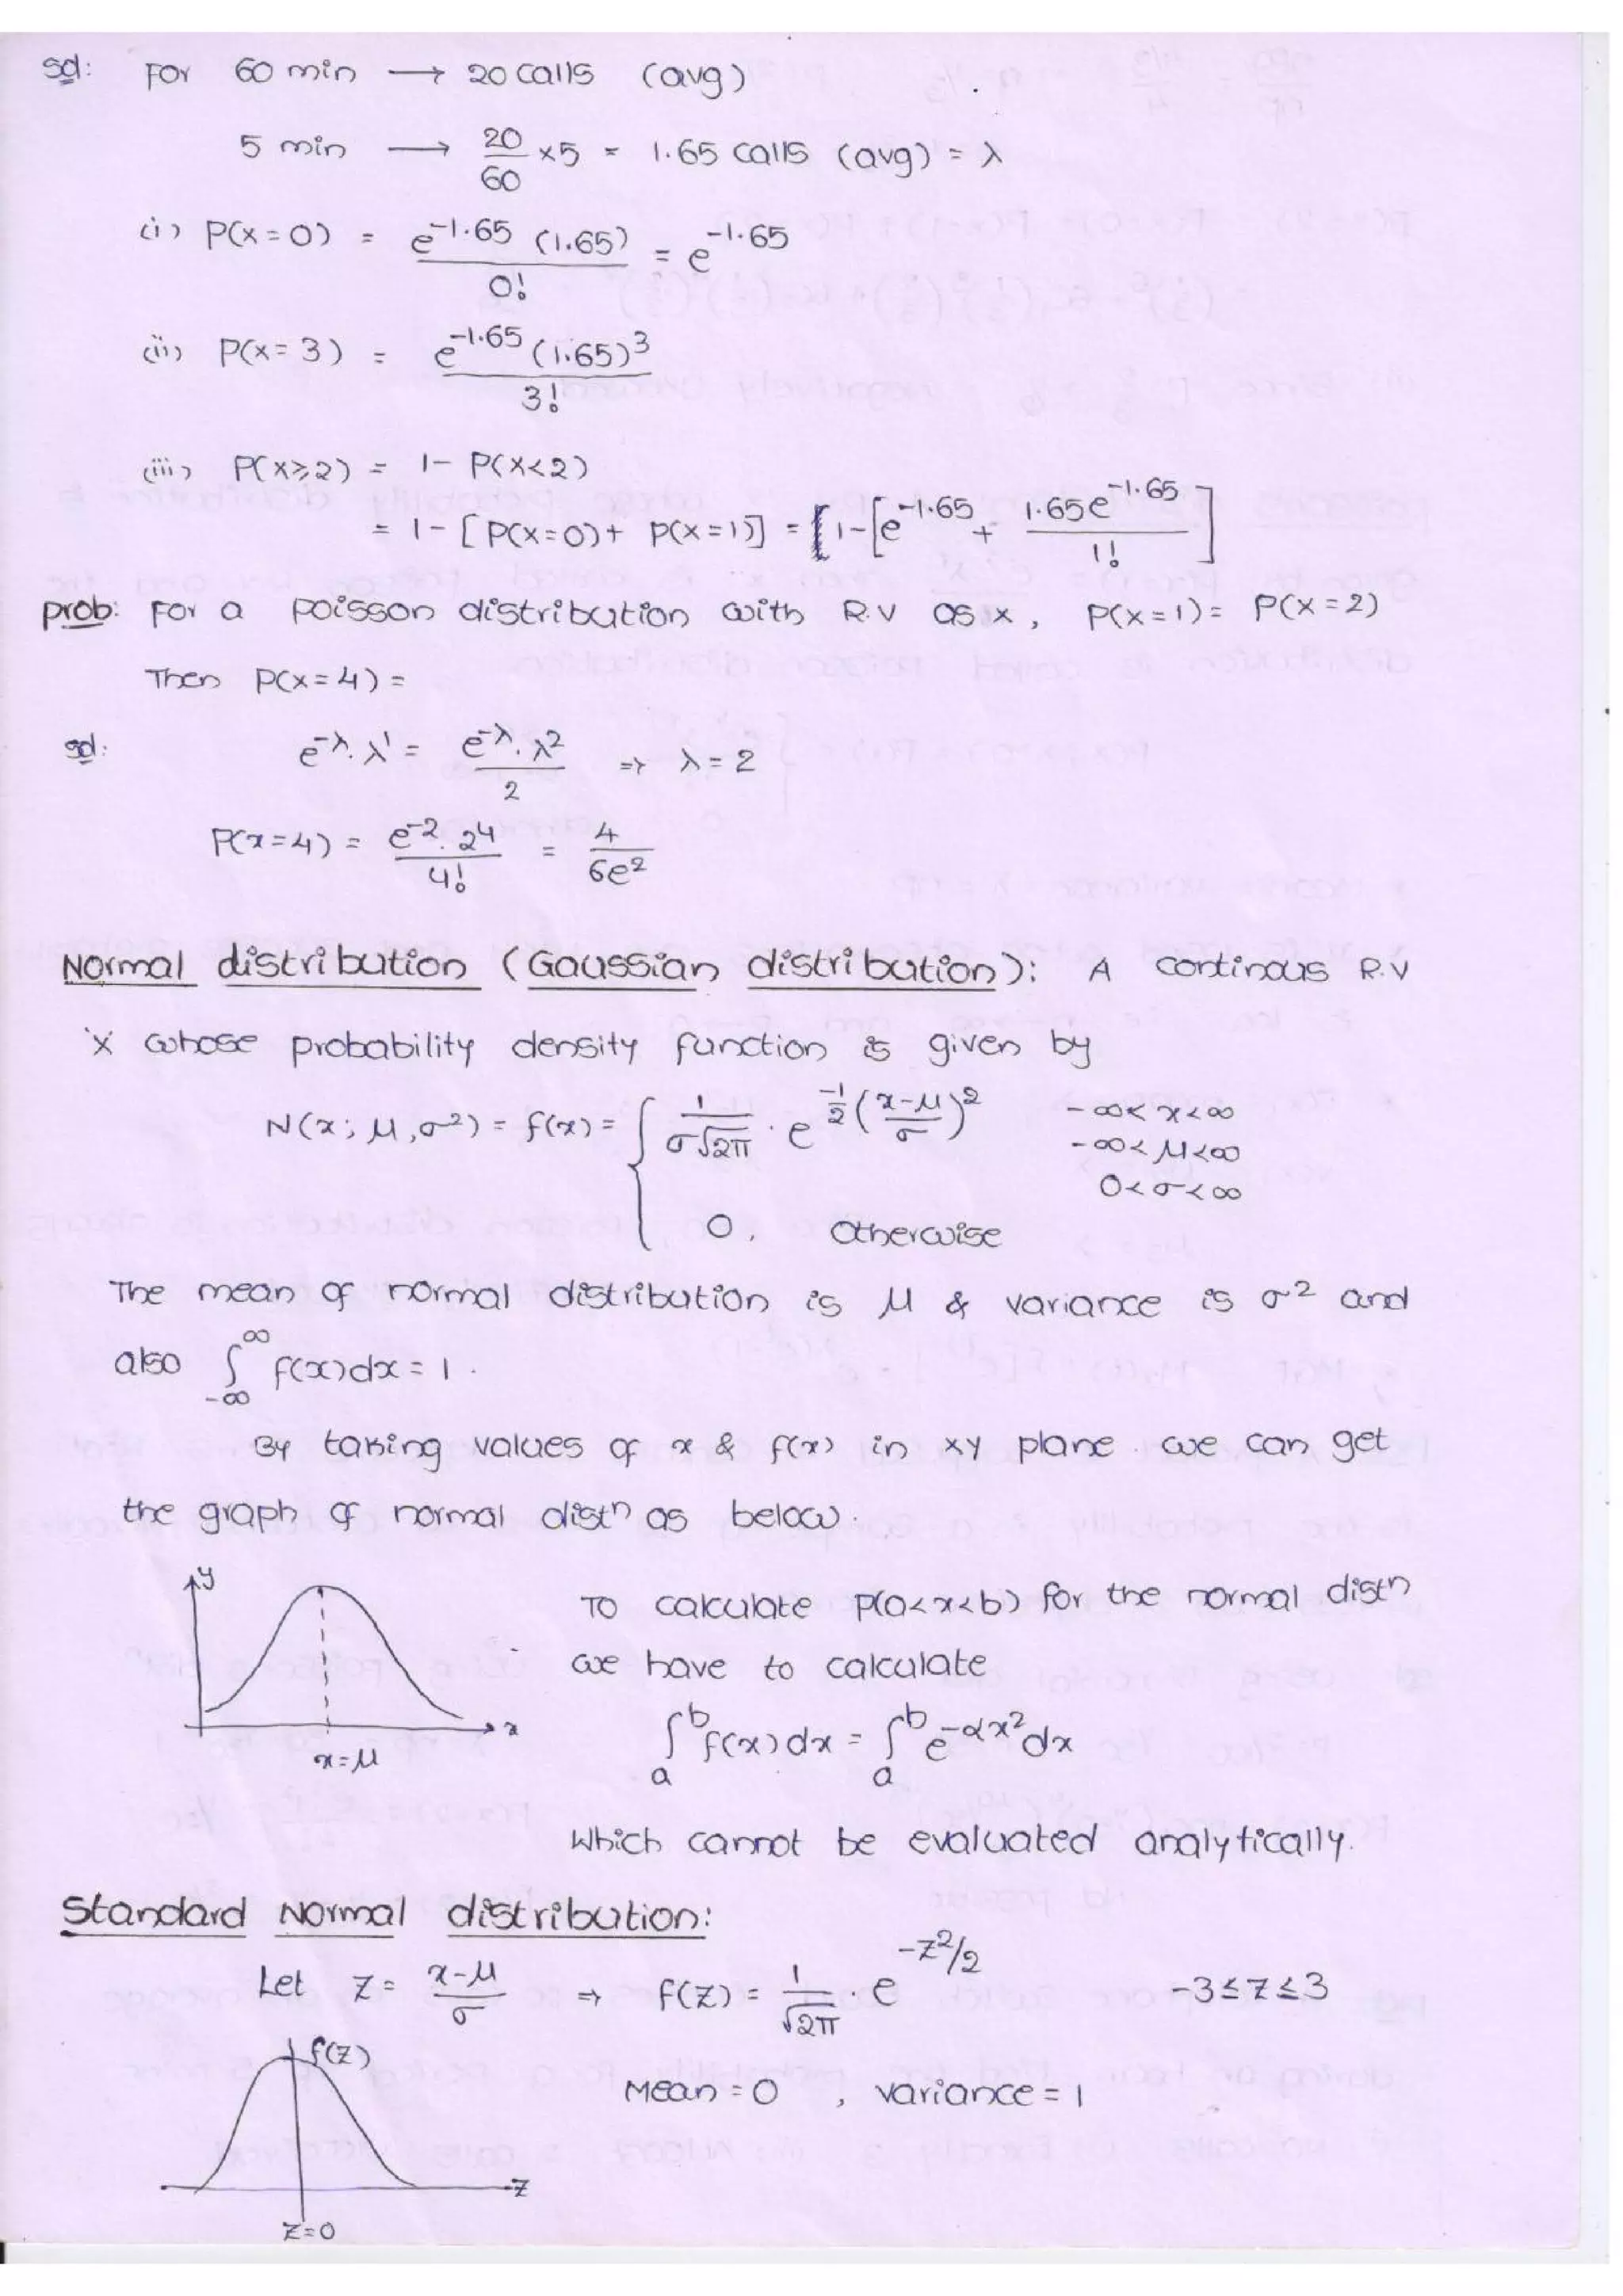 sol: For 60 min → 20 calls (avg)
5 min → 20/60 ×5 = 1.65 calls (avg) = λ
(i) P(x=0) = e^-1.65 (1.65) / 0! = e^-1.65
(ii) P(x=3) = e^-1.65 (1.65)^3 / 3!
(iii) P(x≥2) = 1- P(x<2)
= 1- [P(x=0)+ P(x=1)] = [1-[e^-1.65 + 1.65e^-1.65 / 1!]
prob: For a poisson distribution with R.V as x, P(x=1)= P(x=2)
Then P(x=4) =
sol: e^-λ.λ^1 = e^-λ.λ^2 / 2 ⇒ λ=2
P(x=4) = e^-2.2^4 / 4! = 4 / 6e^2
Normal distribution (Gaussian distribution): A continous R.V
'x' whose probability density function is given by
N(x; μ,σ^2) = f(x) = { 1/σ√2π . e^-1/2 (x-μ/σ)^2 -∞<x<∞
-∞<μ<∞
0<σ<∞
0, otherwise
The mean of normal distribution is μ & variance is σ^2 and
also ∫_-∞^∞ f(x)dx = 1.
By taking values of x & f(x) in xy plane we can get
the graph of normal dist^n as below.
y
x
x=μ
To calculate P(a<x<b) for the normal dist^n
we have to calculate
∫_a^b f(x)dx = ∫_a^b e^-αx^2 dx
which cannot be evaluated analytically.
Standard Normal distribution:
Let Z = x-μ/σ ⇒ f(Z) = 1/√2π . e^-Z^2/2 -3≤Z≤3
f(Z)
Z
Z=0
Mean = 0 , variance = 1